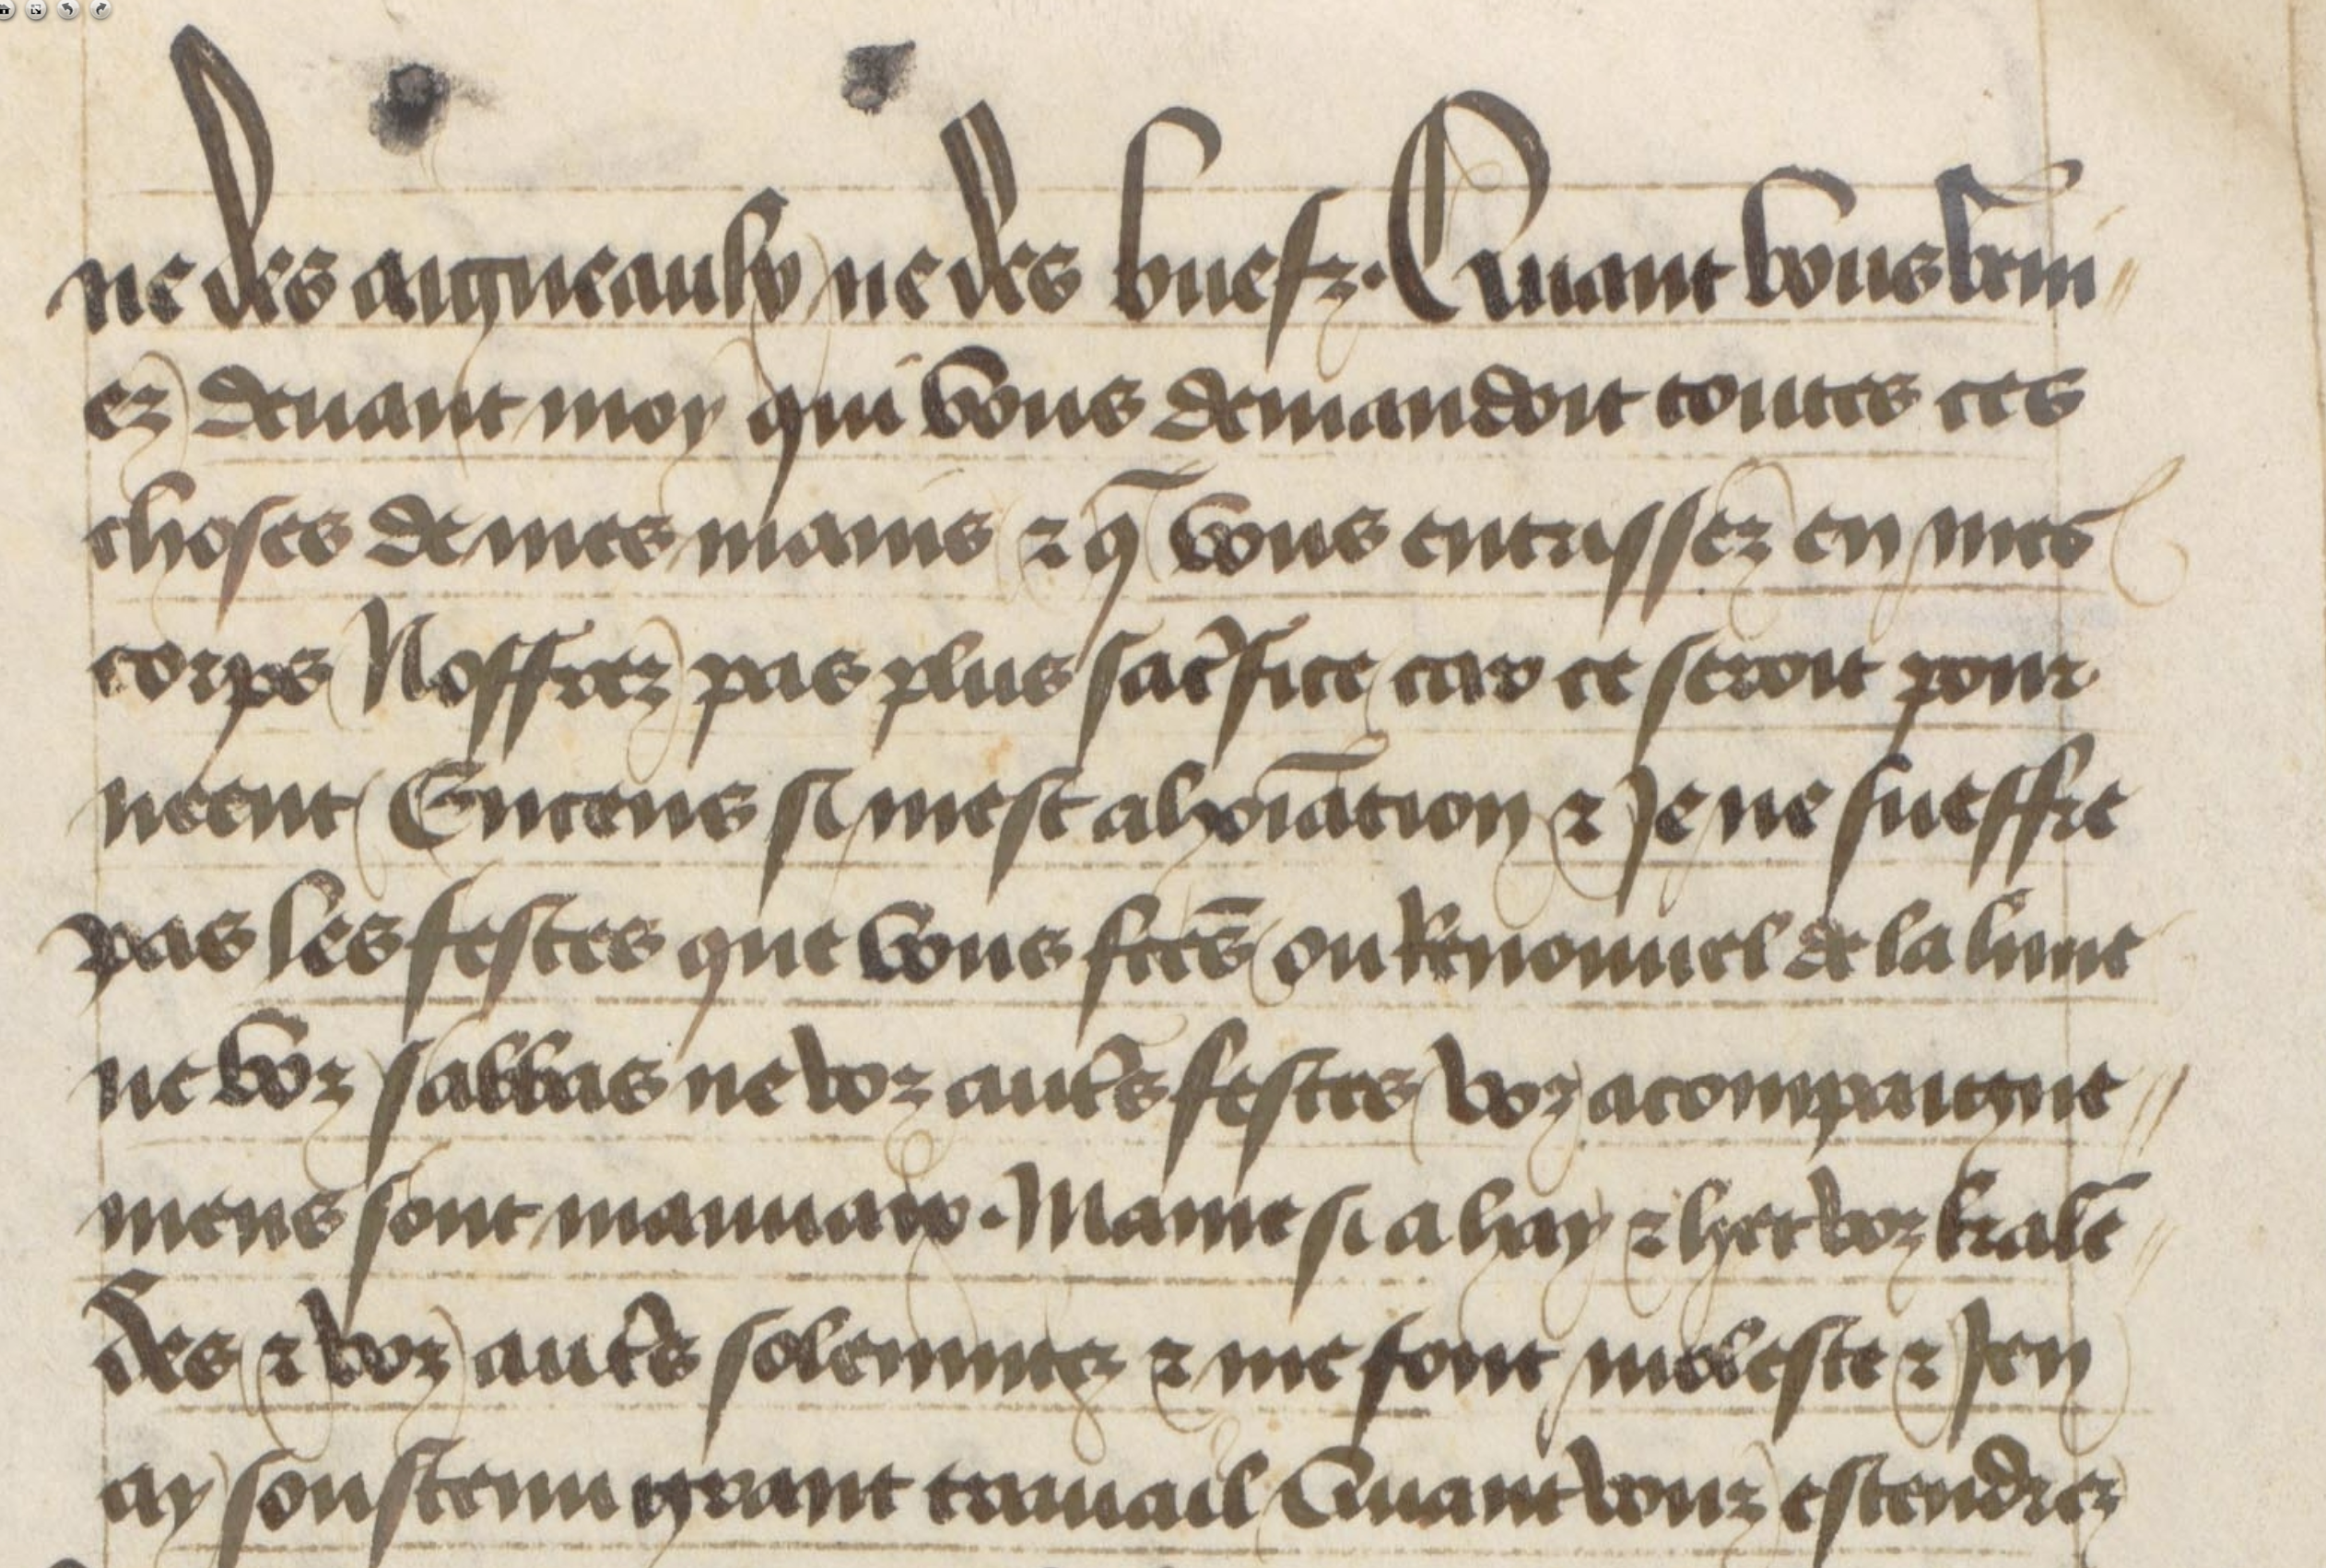 ne des aigneaulx ne des buefz. Quant vous veni
ez devant moy qui vous demandoit toutes ces
choses de mes mains ⁊ q̄ vous entrissez en mes
corps Noffrez pas plus sacrifice car ce seroit pour
neent Encens si mest abhoiācion ⁊ Je ne sueffre
pas les festes que vous fctēs ou Renouuel de la lune
ne voz sabbas ne voz autrs festes voz acompaigne
mens sont mauuaix. Mame si a hay ⁊ het voz kalē
des ⁊ voz autrs solemnitez ⁊ me font moleste ⁊ Jen
ay soustenu grant trauail Quant vouz estendrez